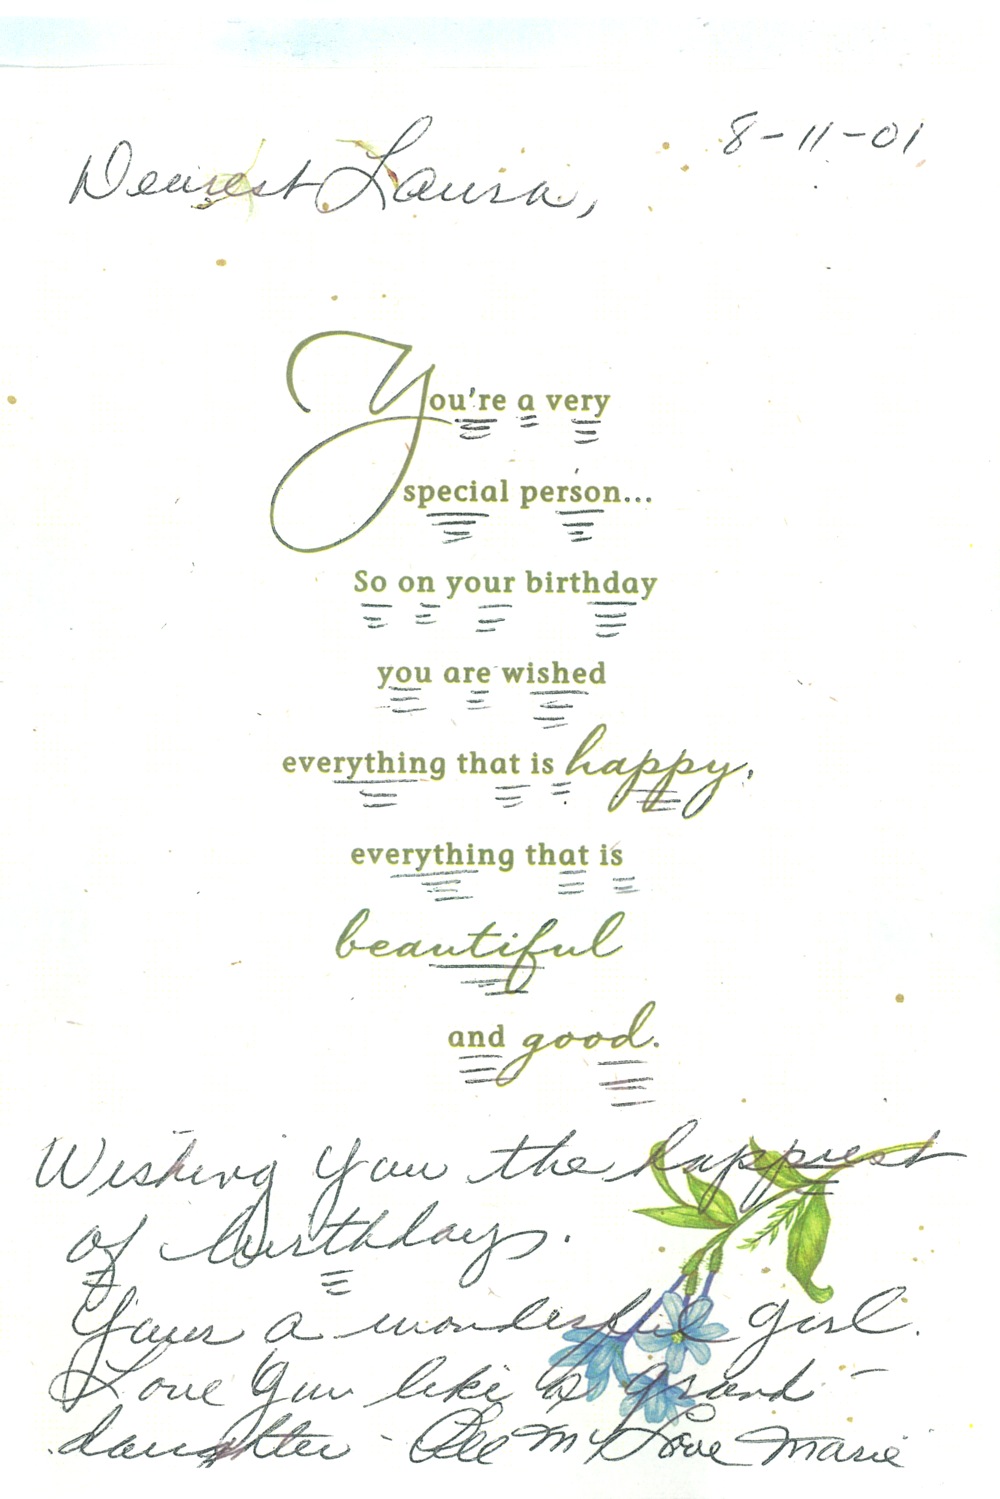 8-11-01
Dearest Laura,
You're a very
special person...
So on your birthday
you are wished
everything that is happy,
everything that is
beautiful
and good.
Wishing you the happiest
of birthdays.
Your a wonderful girl.
Love you like a grand-
daughter - All My Love Marie